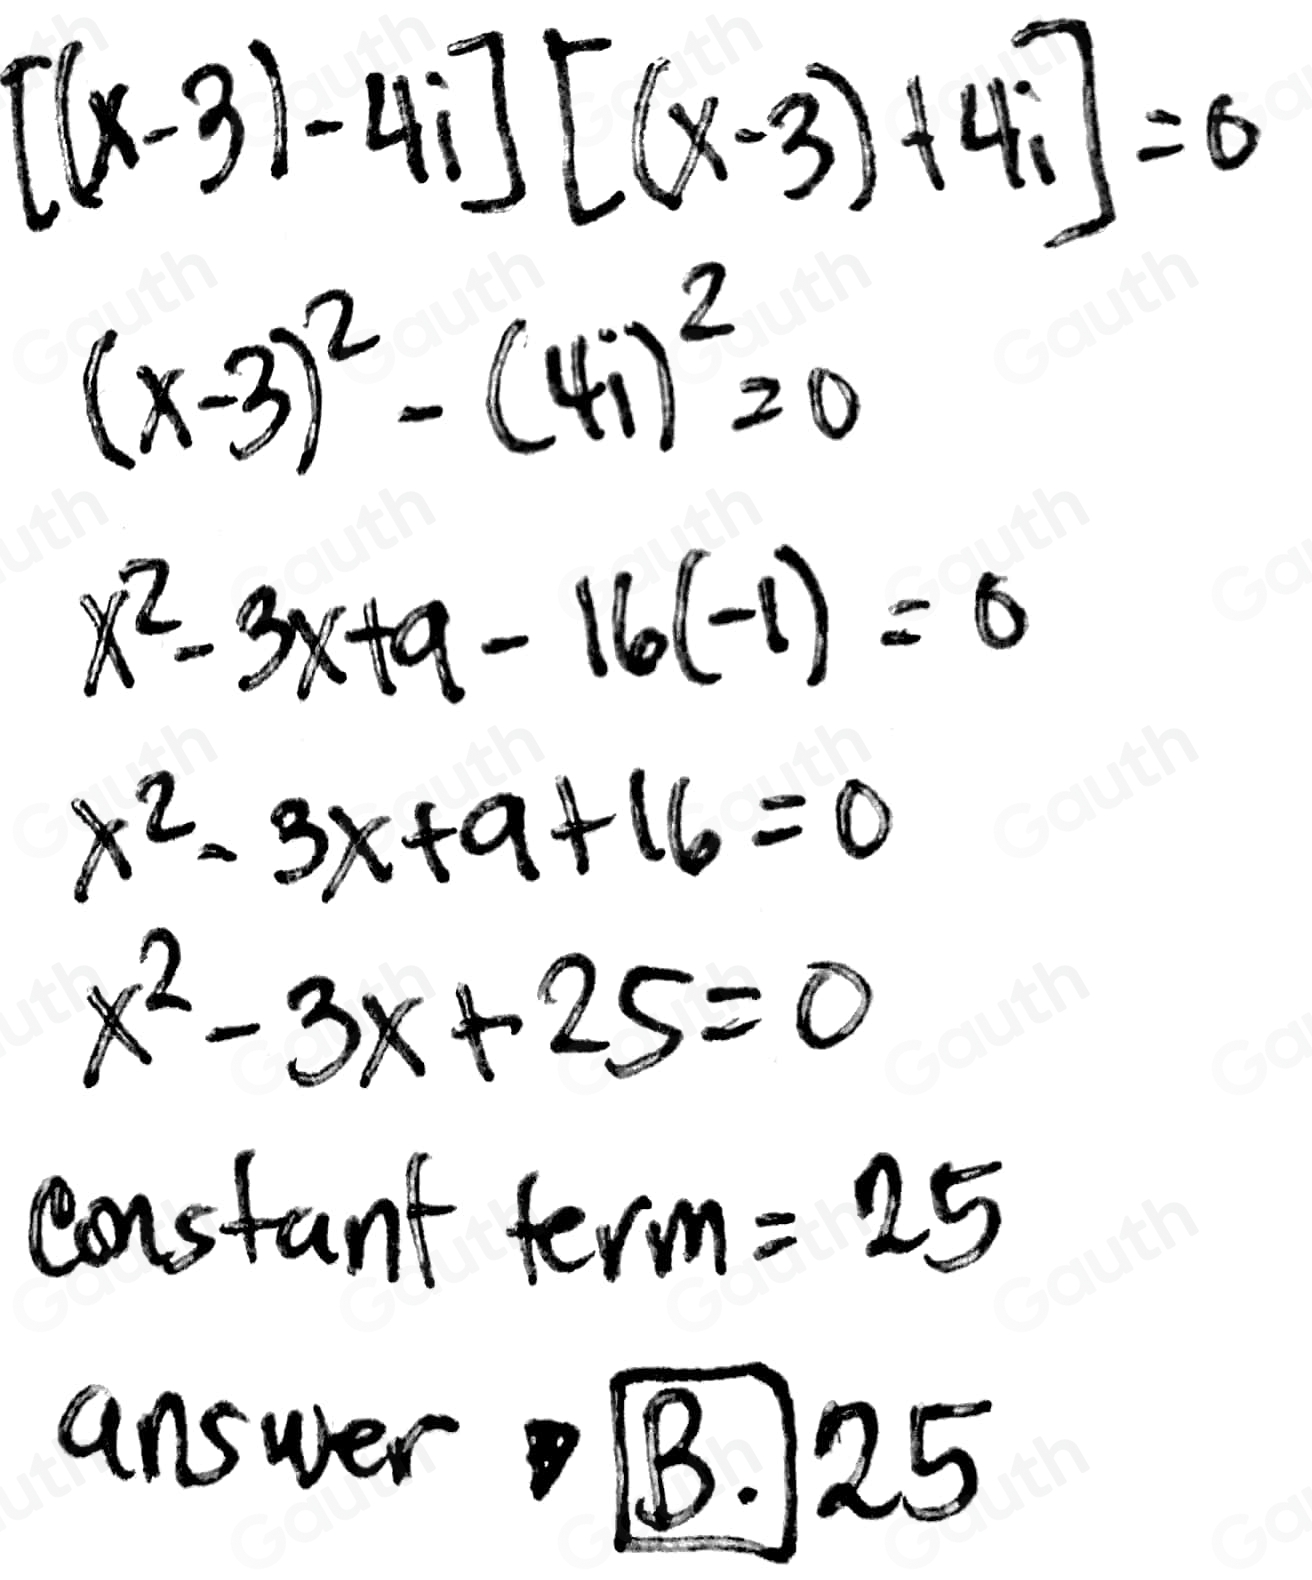 [(x-3)-4i][(x-3)+4i]=0
(x-3)²-(4i)²=0
x²-3x+9-16(-1)=0
x²-3x+9+16=0
x²-3x+25=0
constant term=25
answer B. 25
Gauth